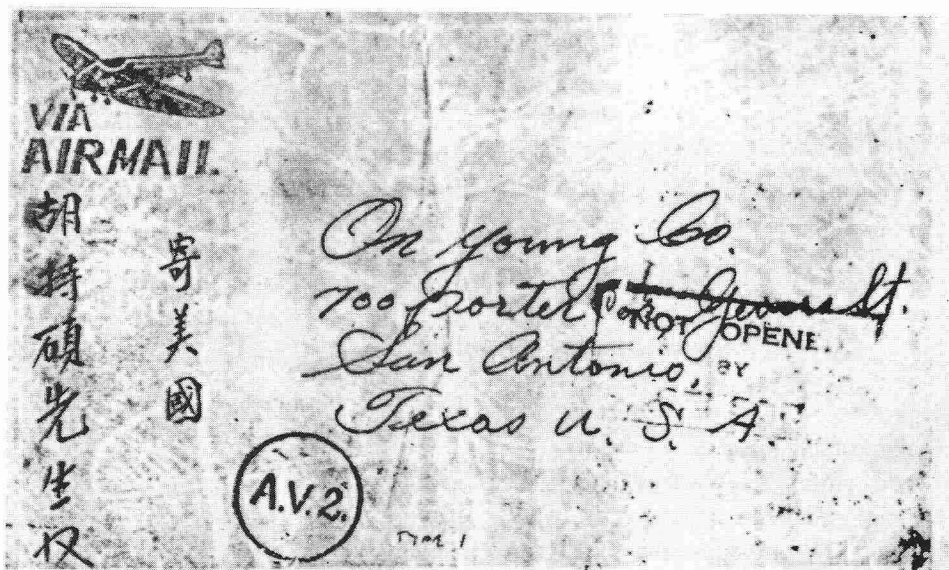 VIA
AIRMAIL
寄美國
胡持碩先生收
On Young Co.
700 Porter St.
NOT OPENE
San Antonio,
BY
Texas U. S. A.
A.V.2.